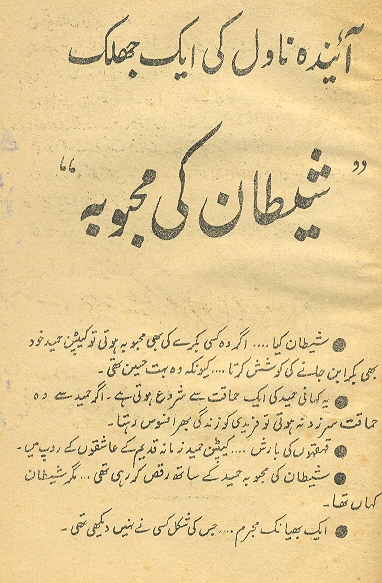 آئندہ ناول کی ایک جھلک
”شیطان کی محبوبہ“
● شیطان کیا .... اگر وہ کسی بکرے کی بھی محبوبہ ہوتی تو کیپٹن حمید خود
بھی بکرا بن جانے کی کوشش کرتا .... کیونکہ وہ بہت حسین تھی۔
● یہ کہانی حمید کی ایک حماقت سے شروع ہوتی ہے۔ اگر حمید سے وہ
حماقت سرزد نہ ہوتی تو فریدی کو زندگی بھر افسوس رہتا۔
● قہقہوں کی بارش .... کیپٹن حمید زمانہ قدیم کے عاشقوں کے روپ میں۔
● شیطان کی محبوبہ حمید کے ساتھ رقص کر رہی تھی ... مگر شیطان
کہاں تھا۔
● ایک بھیانک مجرم .... جس کی شکل کسی نے نہیں دیکھی تھی۔